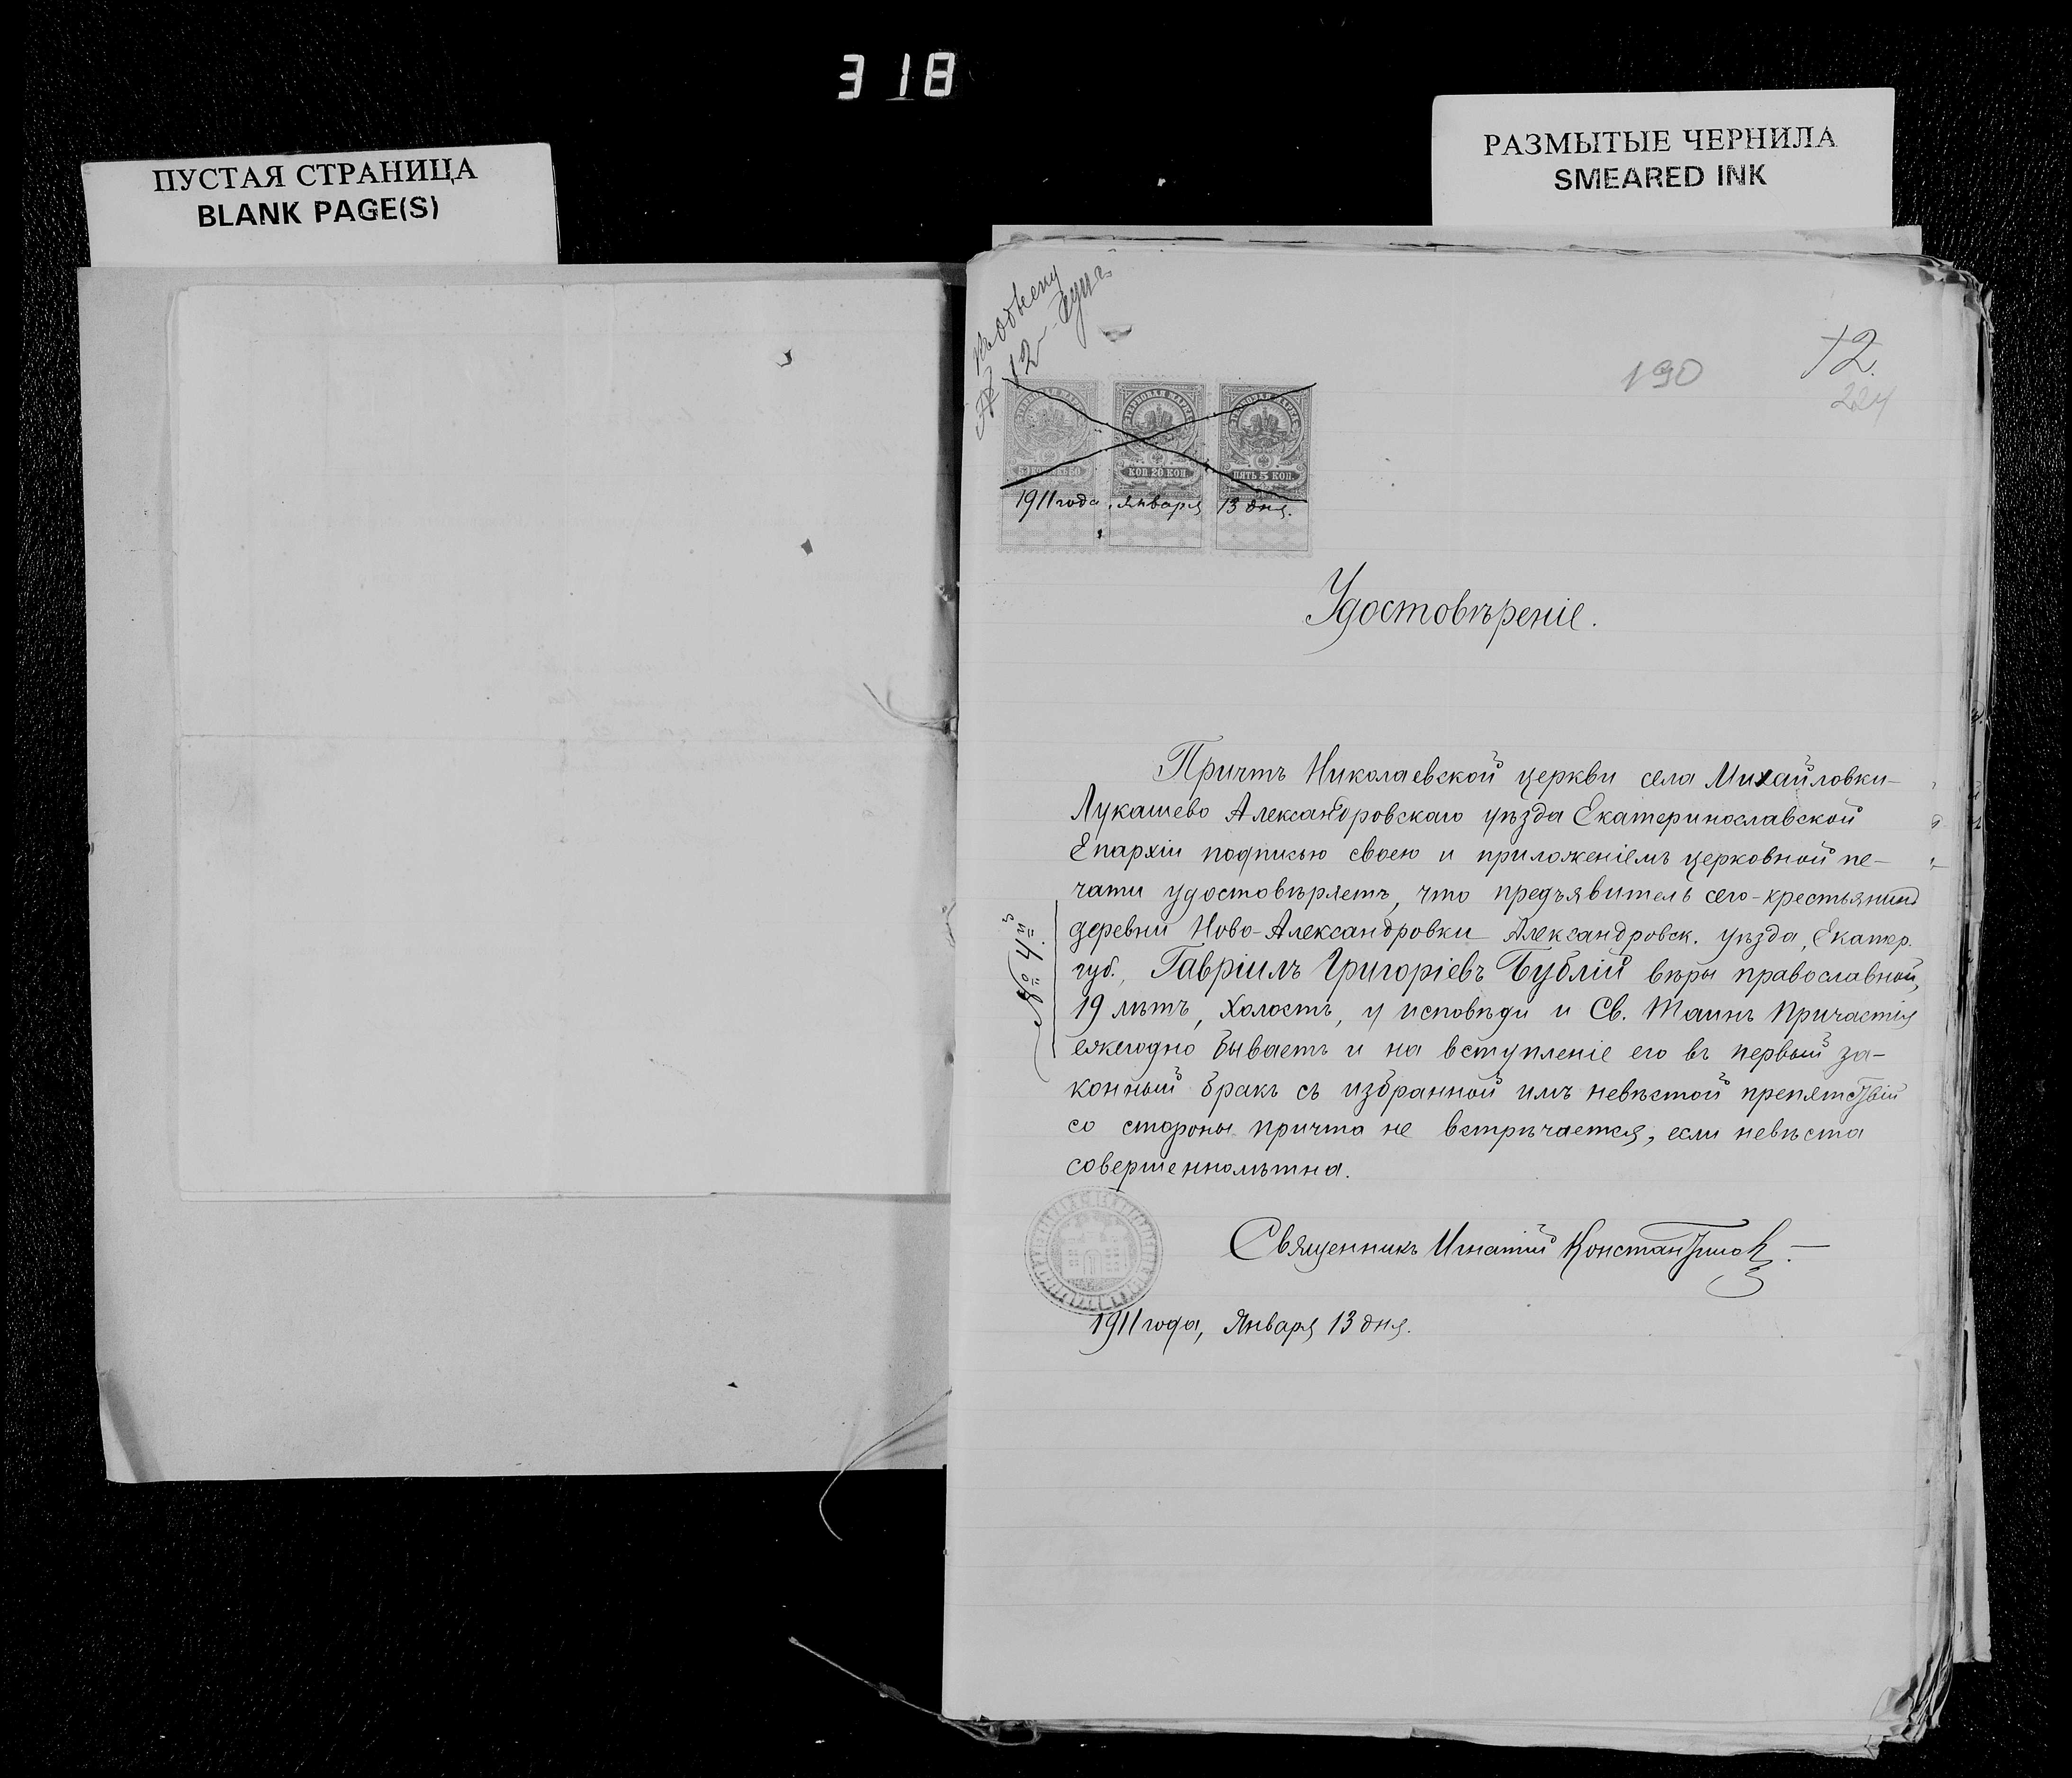 318
ПУСТАЯ СТРАНИЦА
BLANK PAGE(S)
РАЗМЫТЫЕ ЧЕРНИЛА
SMEARED INK
12.
190
224
КОП 20 КОП
ПЯТЬ 5 КОП.
1911 года, января 13 дня.
Удостовѣреніе.
Причтъ Николаевской церкви села Михайловки-
Лукашево Александровскаго уѣзда Екатеринославской
Епархіи подписью своею и приложеніемъ церковной пе-
чати удостовѣряетъ, что предъявитель сего - крестьянинъ
деревни Ново-Александровки Александровск. уѣзда, Екатер.
губ., Гавріилъ Григоріевъ Бублій вѣры православной,
19 лѣтъ, холостъ, у исповѣди и Св. Таинъ Причастія
ежегодно бываетъ и на вступленіе его въ первый за-
конный бракъ съ избранной имъ невѣстой препятствій
со стороны причта не встрѣчается, если невѣста
совершеннолѣтна.
№ 4
Священникъ Игнатій Константинов
1911 года, Января 13 дня.